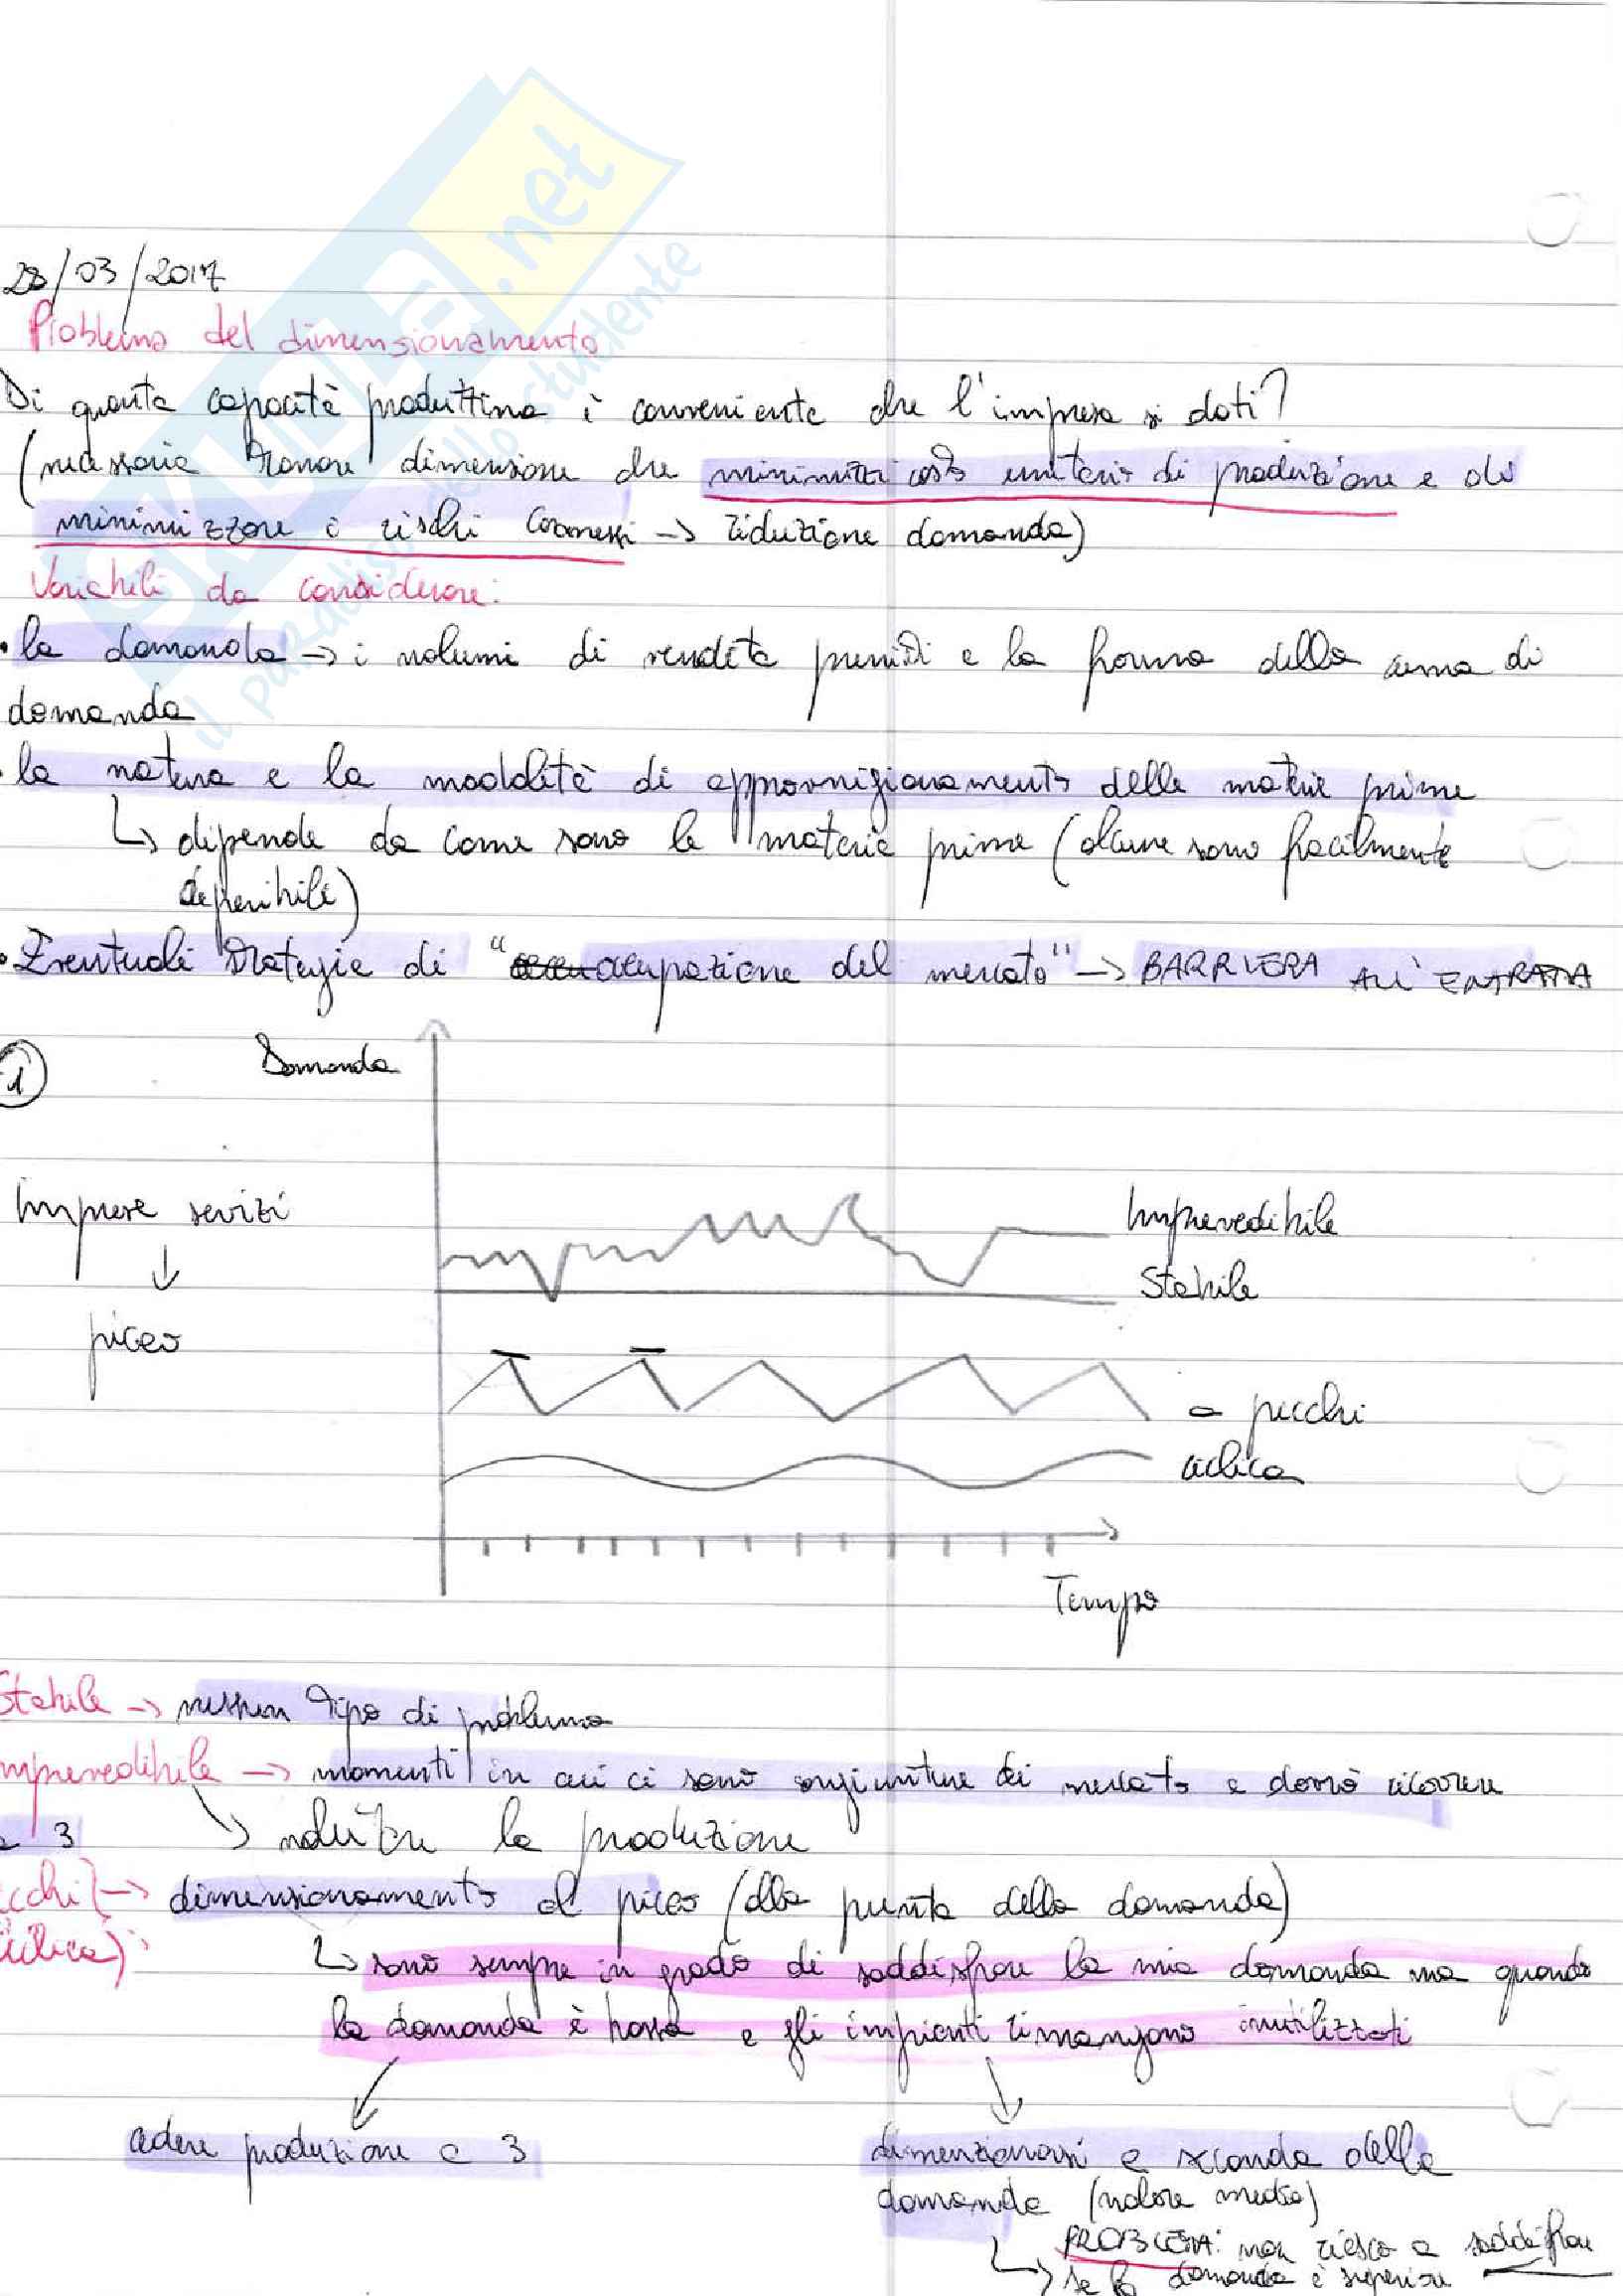 SKUOLA.net
il paradiso dello studente
28/03/2017
Problema del dimensionamento
Di quanta capacità produttiva è conveniente che l'impresa si doti?
(necessario trovare dimensione che minimizzi costo unitario di produzione e di
minimizzare i rischi connessi → riduzione domanda)
Variabili da considerare:
• la domanda → i volumi di vendita previsti e la forma della curva di
domanda
• la natura e la modalità di approvvigionamento delle materie prime
↳ dipende da come sono le materie prime (alcune sono facilmente
deperibili)
• Eventuali strategie di "occupazione del mercato" → BARRIERA ALL'ENTRATA
1
Domanda
Imprese servizi
↓
picco
Imprevedibile
Stabile
a picchi
ciclica
Tempo
Stabile → nessun tipo di problema
Imprevedibile → momenti in cui ci sono congiunture di mercato e dovrò ricorrere
a 3
↘ ridurre la produzione
picchi → dimensionamento al picco (alla punta della domanda)
ciclica
↳ sono sempre in grado di soddisfare la mia domanda ma quando
la domanda è bassa e gli impianti rimangono inutilizzati
cedere produzione a 3
dimensionarsi a seconda della
domanda (valore medio)
↳ PROBLEMA: non riesco a soddisfare
se la domanda è superiore